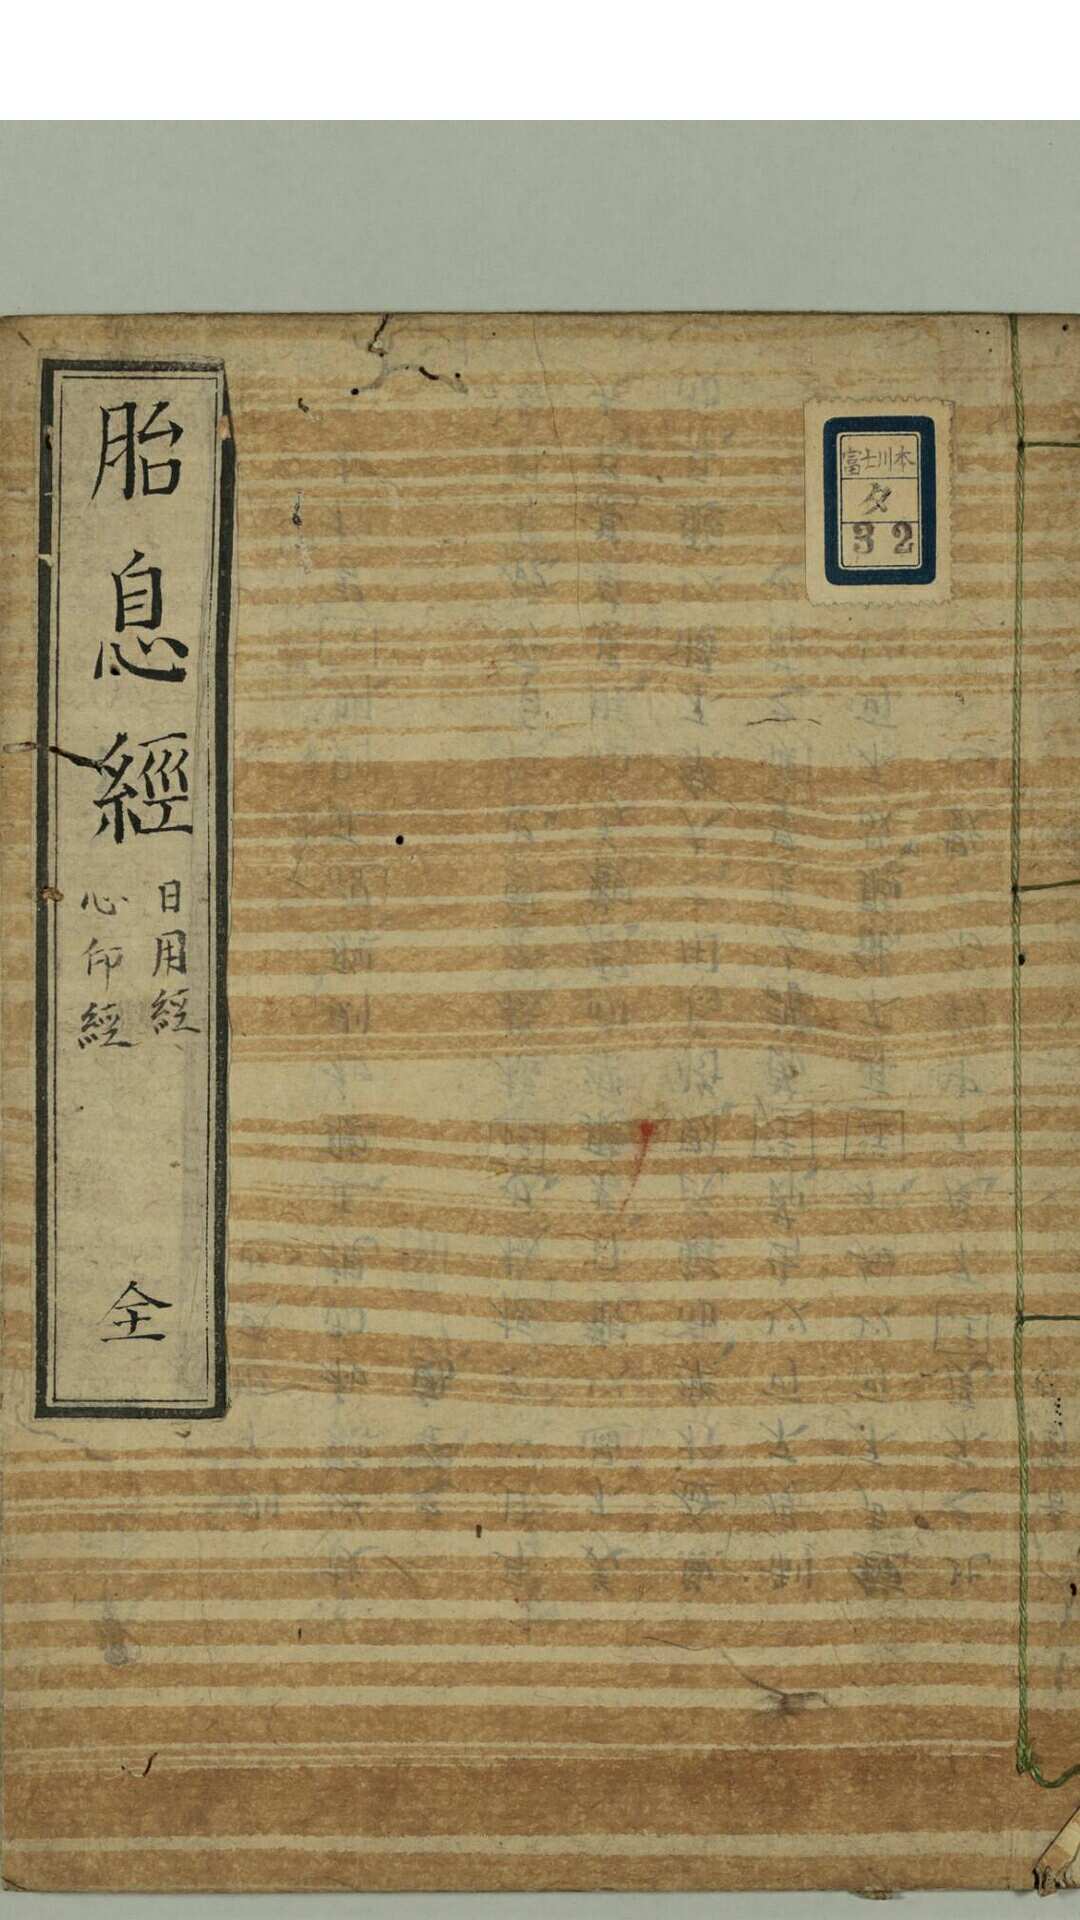 胎息經
日用經
心印經
全
富士川本
タ
32